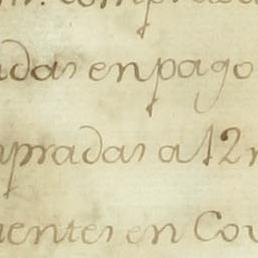 adas en pago
pradas a 12
entes en Co